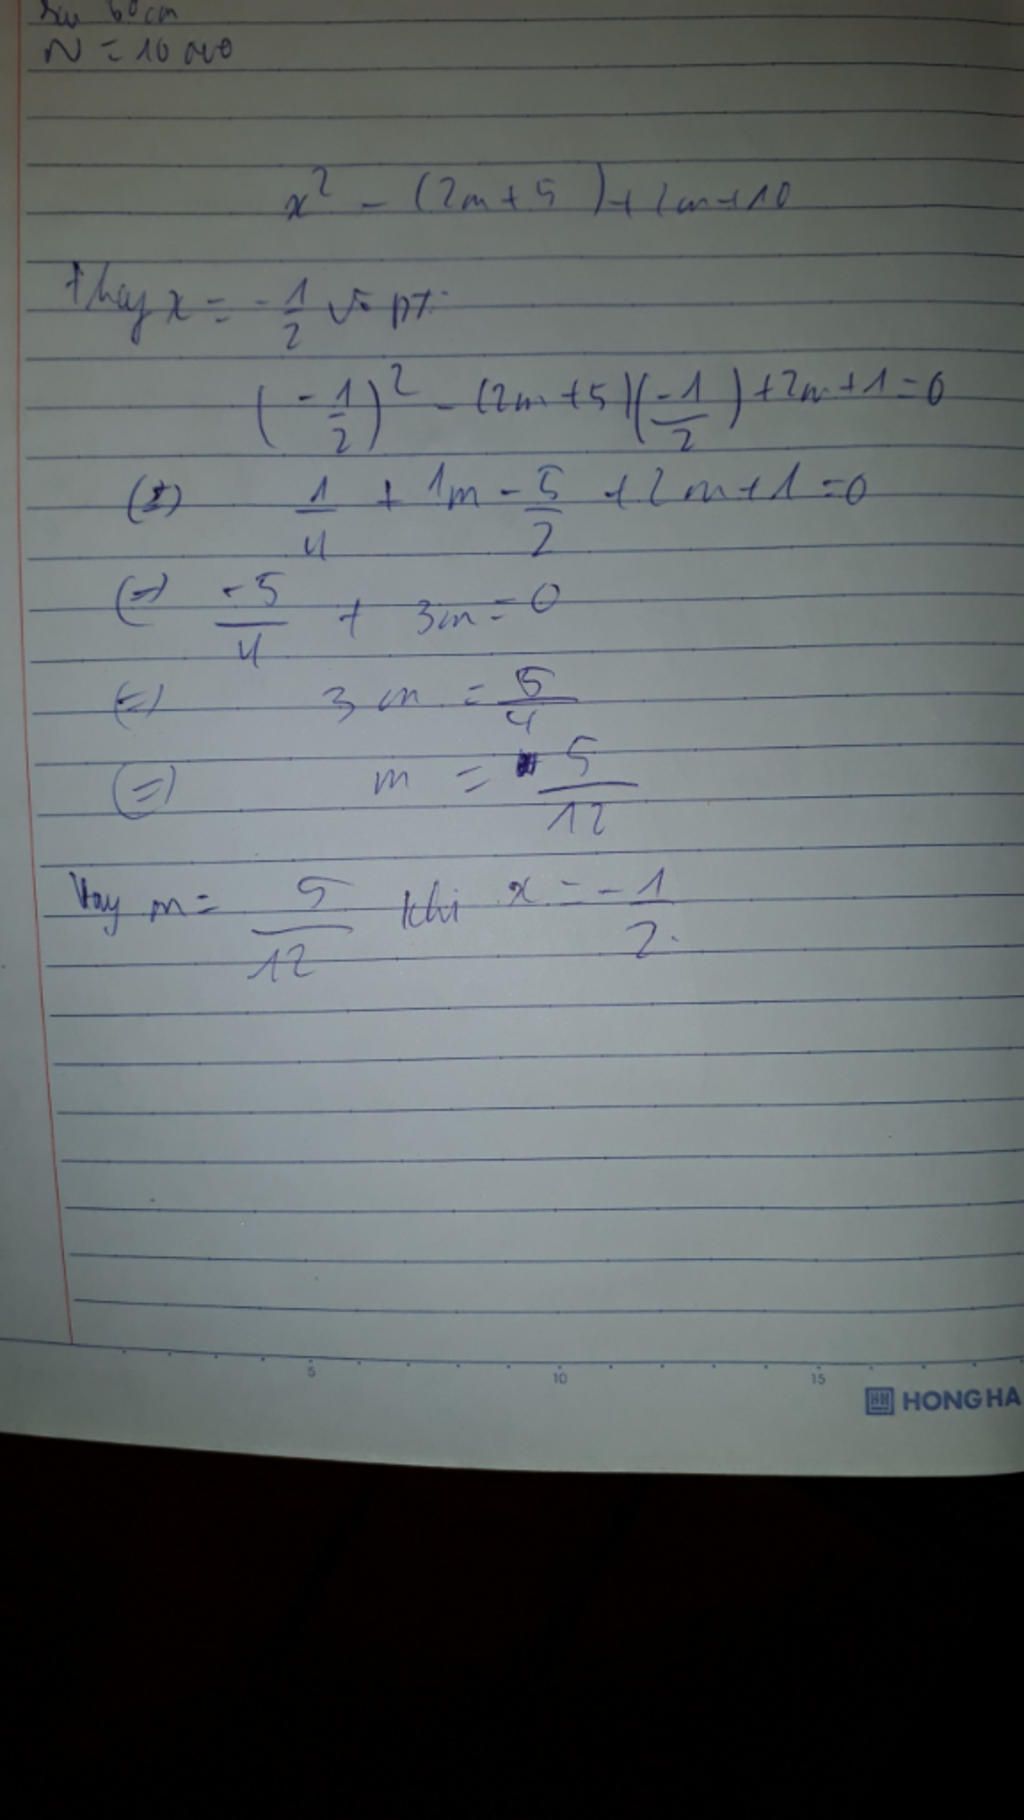 60cm
N = 10 000
x² - (2m+5)+2m+10
thay x = -1/2 vô pt:
(-1/2)² - (2m+5)(-1/2)+2m+1=0
(=) 1/4 + 1m - 5/2 + 2m+1=0
(=) -5/4 + 3m=0
(=) 3m = 5/4
(=) m = 5/12
Vay m= 5/12 khi x = -1/2.
5 10 15
HH HONG HA